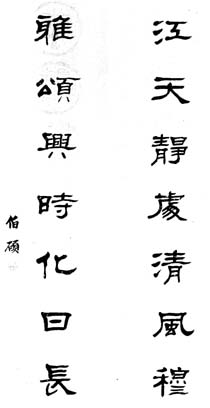 江天靜處清風穆
雅頌興時化日長
伯碩